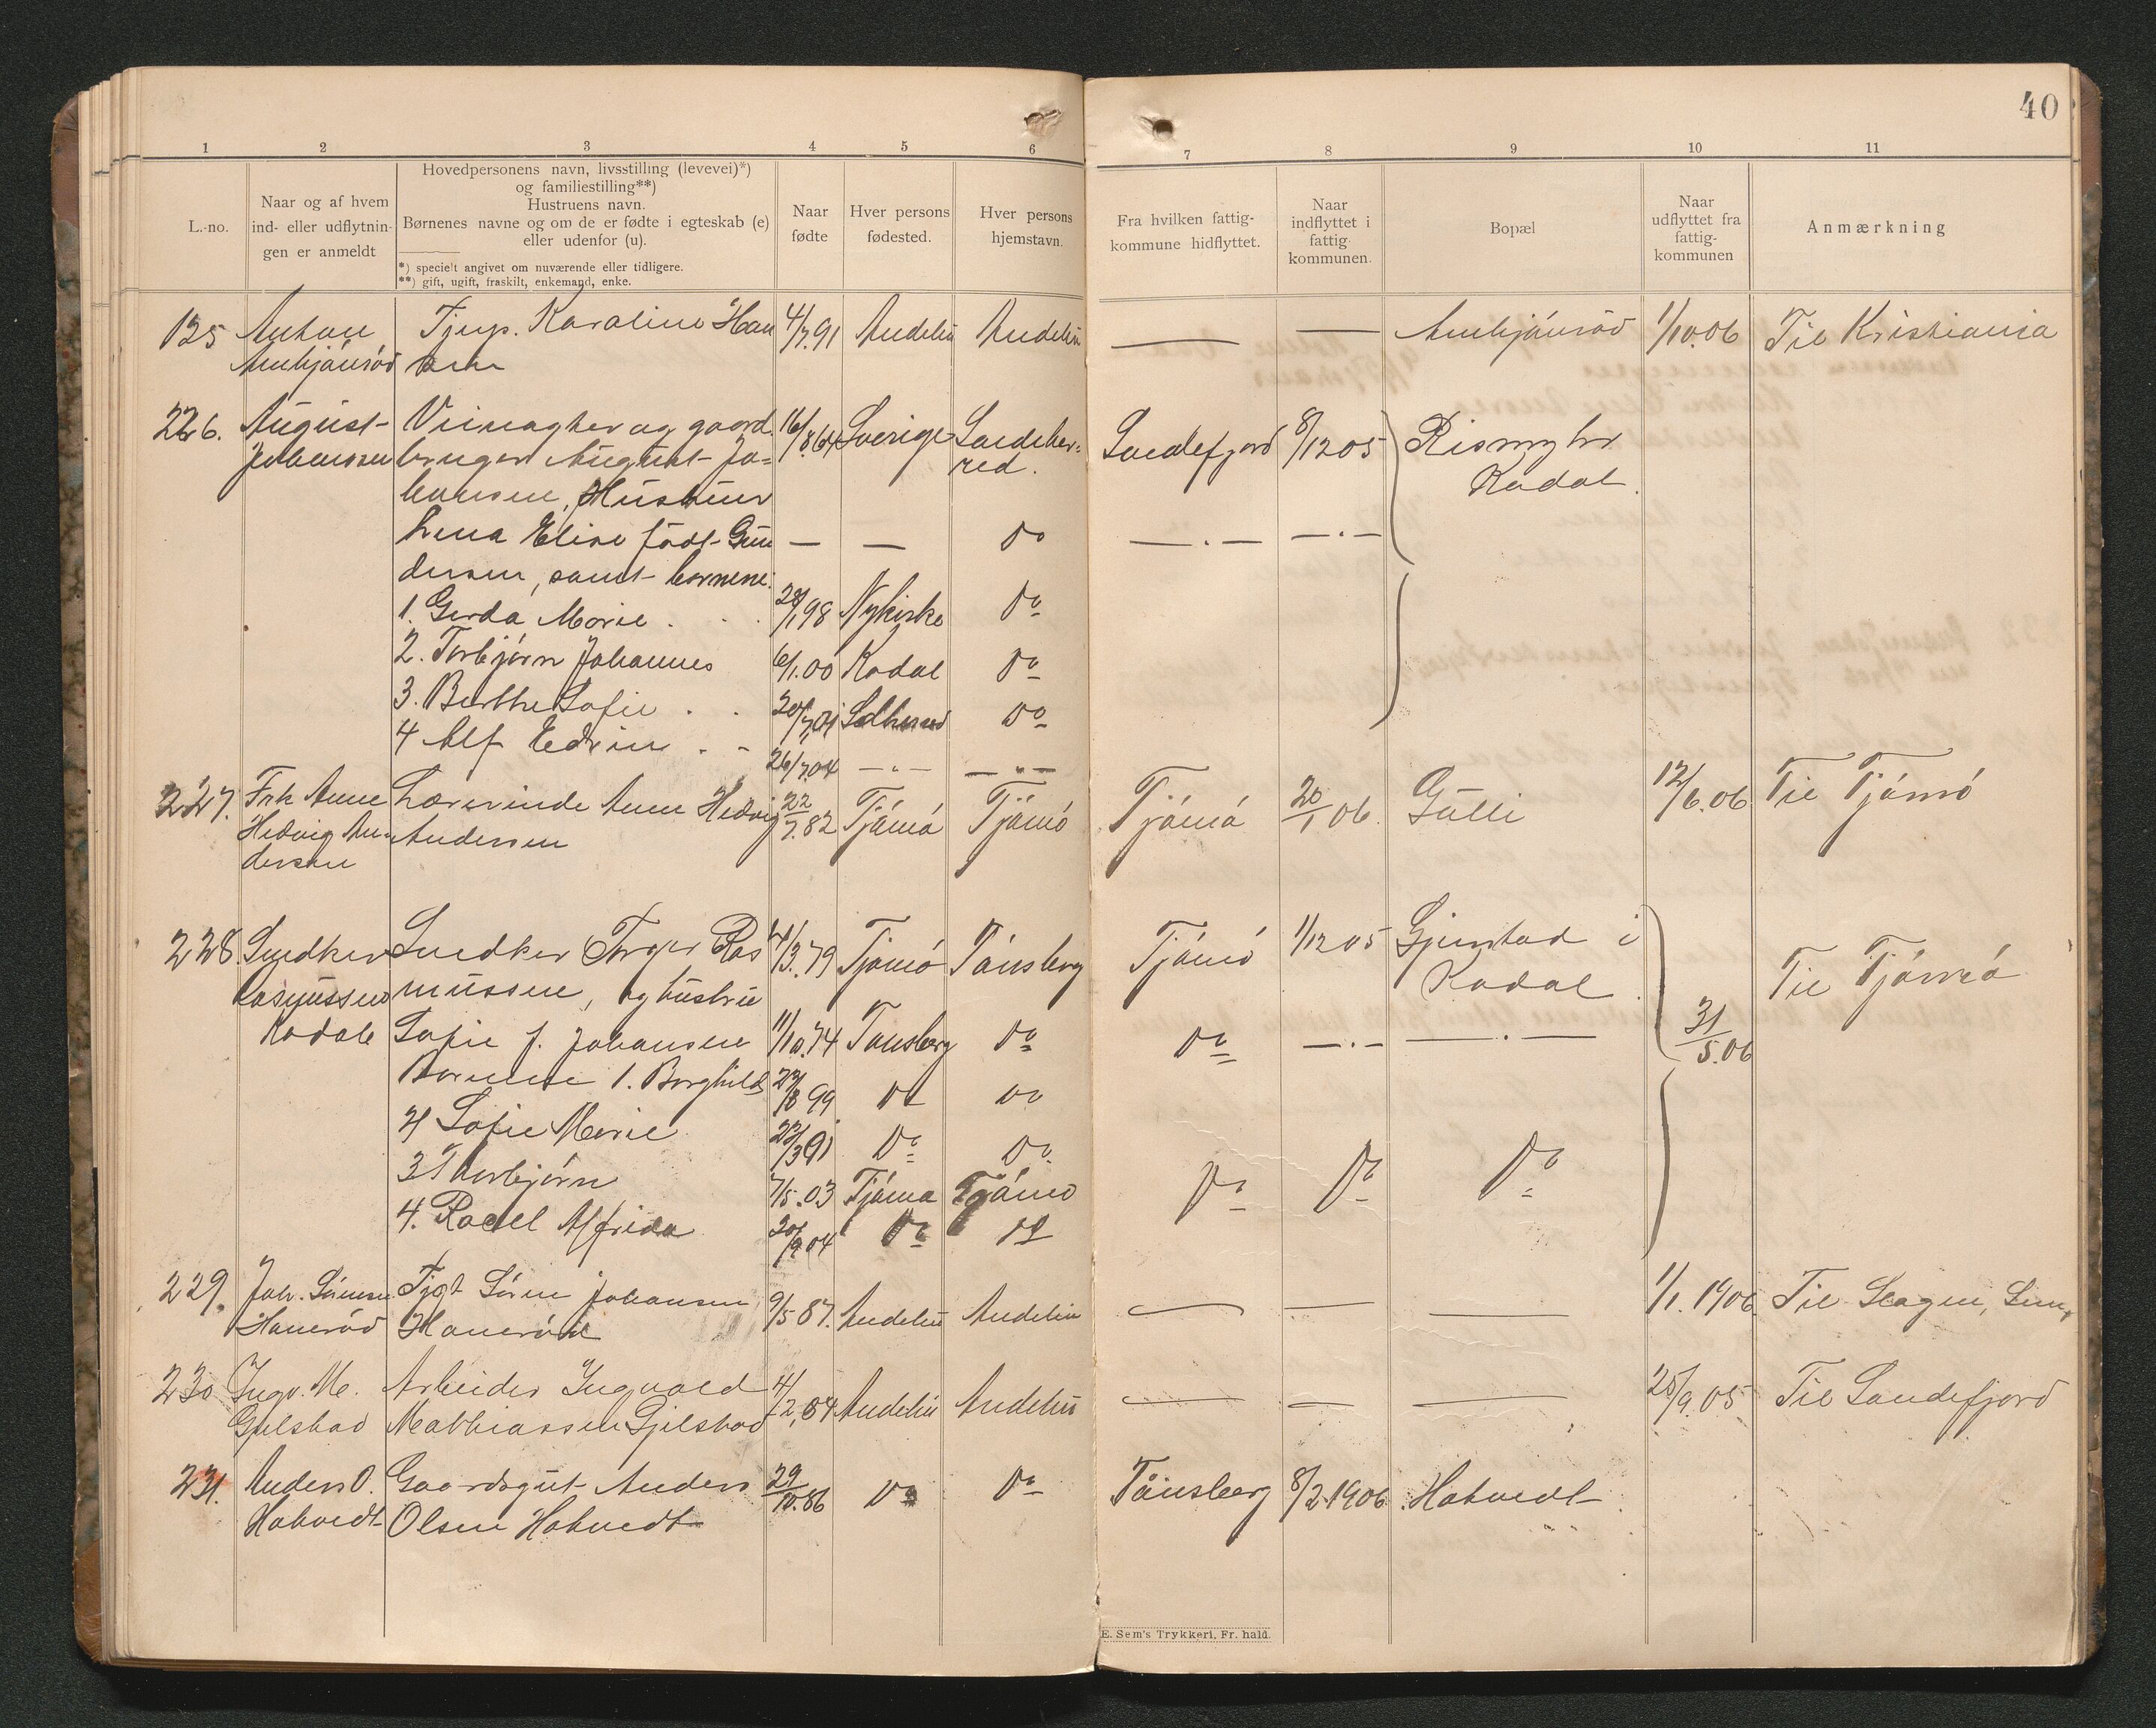 40
1 2 3 4 5 6 7 8 9 10 11
L.-no.
Naar og af hvem
ind- eller udflytnin-
gen er anmeldt
Hovedpersonens navn, livsstilling (levevei)*)
og familiestilling**)
Hustruens navn.
Børnenes navne og om de er fødte i egteskab (e)
eller udenfor (u).
*) specielt angivet om nuværende eller tidligere.
**) gift, ugift, fraskilt, enkemand, enke.
Naar
fødte
Hver persons
fødested.
Hver persons
hjemstavn.
Fra hvilken fattig-
kommune hidflyttet.
Naar
indflyttet i
fattig-
kommunen.
Bopæl
Naar
udflyttet fra
fattig-
kommunen
Anmærkning
125 Anton Tjnp. Karoline Han 4/7.91 Andebu Andebu — — 1/10.06 Til Kristiania
sen
226. August Vei og gaard 16/8.64 Sverige Sandeher- Sandefjord 8/12 05 Rismyhr
Johansen bruger August Jo- red. Kodal.
hansen, Hustrue
Lena Elise født Gun — — Do —.— —.—
dersen, samt børnene:
1. Gerda Marie . . 28/1.98 Nykirke Do
2. Torbjørn Johannes 6/1.00 Kodal Do
3. Berthe Sofie . . 20/7.01 Do
4 Alf Edvin . - 26/7.04 —"— —"—
227. Frk Anne Lærerinde Anne Hedvig 22/7.82 Tjömö Tjömö Tjömö 20/1 06. Gülli 12/6.06 Til Tjömö
Hedvig An- Andersen
dersen
228. Snedker Snedker Torger Ras 4/3.79 Tjömö Tönsberg Tjömö 1/12 05 Gjerstad i Til Tjömö
Rasmussen mussen, og hustrue Kodal.
Kodal Sofie f. Johansen 11/10.74 Tønsberg Do Do —.— —.— 31/5.06
Børnene 1. Borghild 22/8 99 Do Do
2 Sofie Marie 22/3 91 Do Do
3 Thorbjörn 7/5.03 Tjömø Tjömö Do Do Do
4. Rakel Alfrida 20/9.04 Do Do
229. Joh. Sörensen Tjgt Sören Johansen 9/5 87. Andebu Andebu — — — 1/1.1906 Til Slagen, Sem,
Hanerød Hanerød
230 Ingv. M. Arbeider Ingvald 4/2.84 Andebu Andebu — — — 25/9.05 Til Sandefjord
Gjelstad Mathiassen Gjelstad
231. Anders O. Gaardsgut Anders 29/10.86 Do Do Tönsberg 8/2.1906 Hotvedt
Hotvedt Olsen Hotvedt
E. Sem's Trykkeri, Fr. hald.